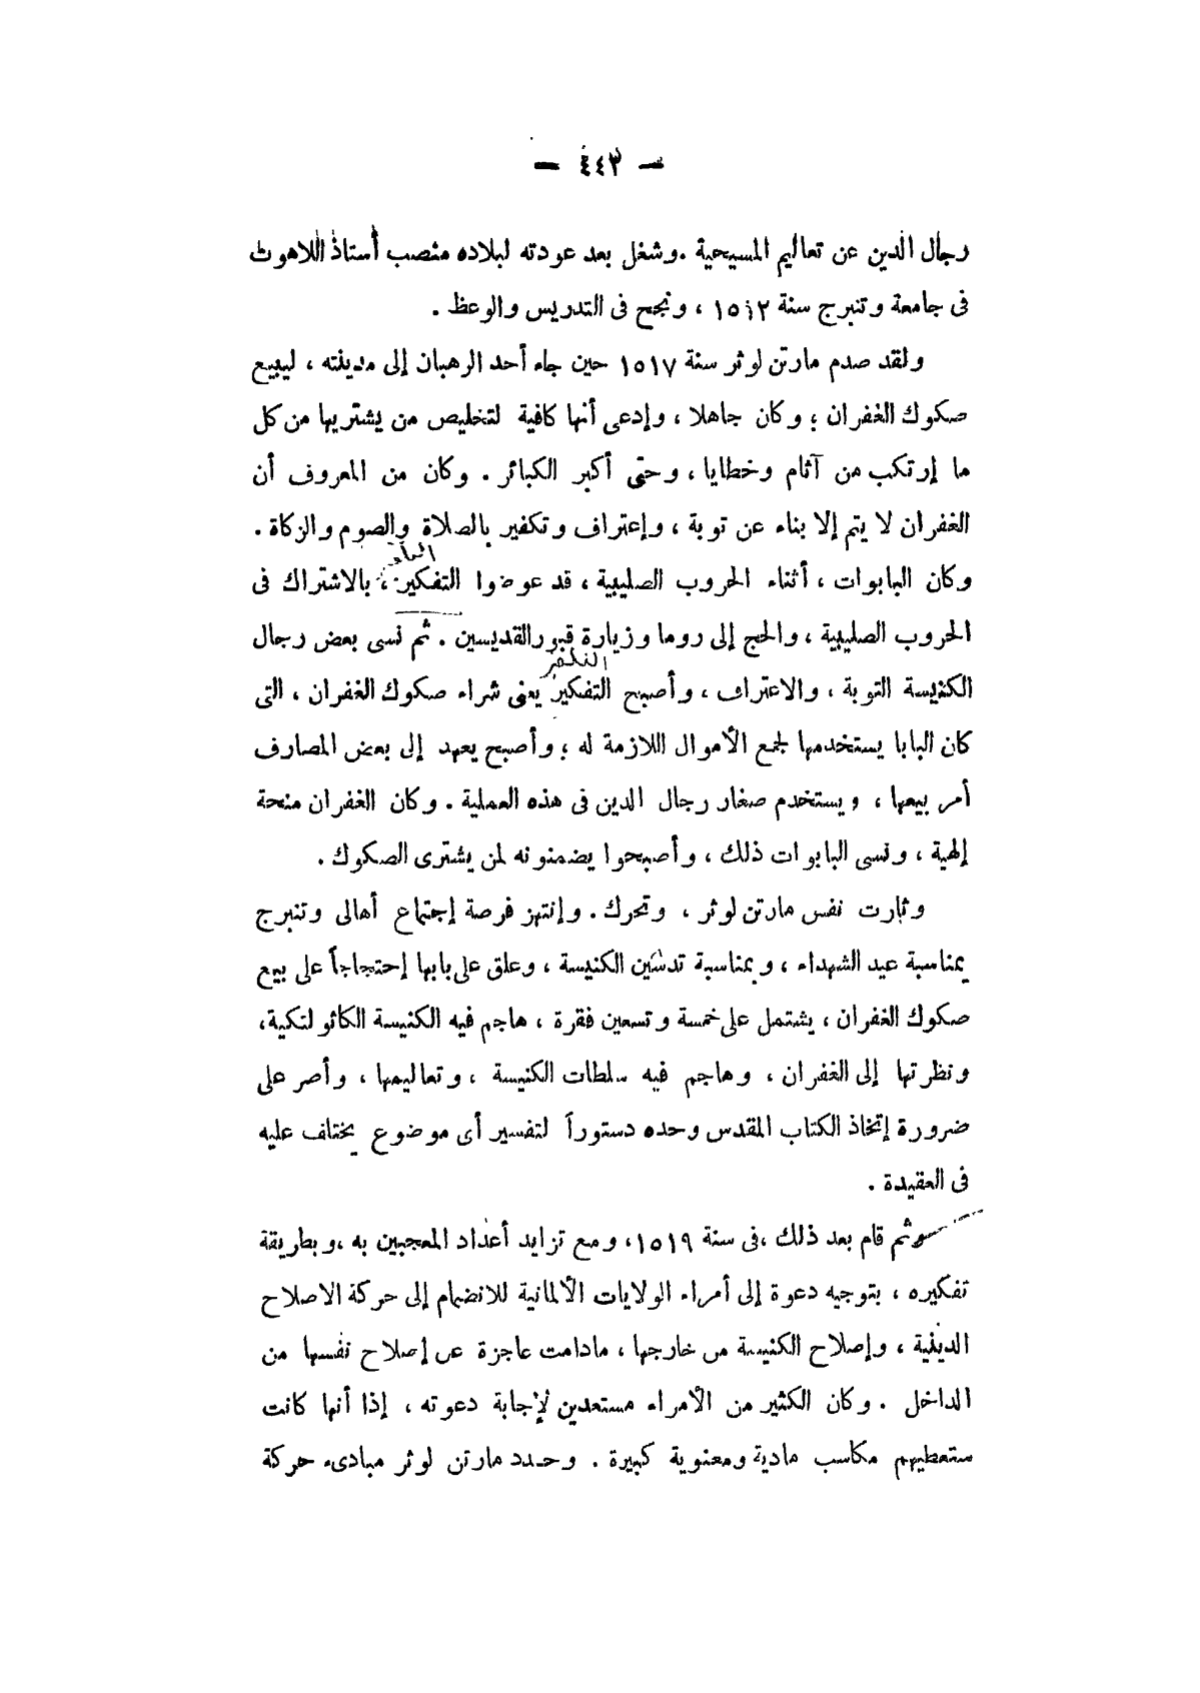 — ٤٤٣ —
رجال الدين عن تعاليم المسيحية . وشغل بعد عودته لبلاده منصب أستاذ اللاهوت
فى جامعة وتنبرج سنة ١٥١٢ ، ونجح فى التدريس والوعظ .
ولقد صدم مارتن لوثر سنة ١٥١٧ حين جاء أحد الرهبان إلى مدينته ، ليبيع
صكوك الغفران ؛ وكان جاهلا ، وإدعى أنها كافية لتخليص من يشتريها من كل
ما إرتكب من آثام وخطايا ، وحتى أكبر الكبائر . وكان من المعروف أن
الغفران لا يتم إلا بناء عن توبة ، وإعتراف وتكفير بالصلاة والصوم والزكاة .
وكان البابوات ، أثناء الحروب الصليبية ، قد عوضوا التفكير ، بالاشتراك فى
الحروب الصليبية ، والحج إلى روما وزيارة قبور القديسين . ثم نسى بعض رجال
التكفير
الكنيسة التوبة ، والاعتراف ، وأصبح التفكير يعنى شراء صكوك الغفران ، التى
كان البابا يستخدمها لجمع الأموال اللازمة له ؛ وأصبح يعهد إلى بعض المصارف
أمر بيعها ، ويستخدم صغار رجال الدين فى هذه العملية . وكان الغفران منحة
إلهية ، ونسى البابوات ذلك ، وأصبحوا يضمنونه لمن يشترى الصكوك .
وثارت نفس مارتن لوثر ، وتحرك . وإنتهز فرصة إجتماع أهالى وتنبرج
بمناسبة عيد الشهداء ، وبمناسبة تدشين الكنيسة ، وعلق على بابها إحتجاجاً على بيع
صكوك الغفران ، يشتمل على خمسة وتسعين فقرة ، هاجم فيه الكنيسة الكاثولتكية ،
ونظرتها إلى الغفران ، وهاجم فيه سلطات الكنيسة ، وتعاليمها ، وأصر على
ضرورة إتخاذ الكتاب المقدس وحده دستوراً لتفسير أى موضوع يختلف عليه
فى العقيدة .
وثم قام بعد ذلك ، فى سنة ١٥١٩ ، ومع تزايد أعداد المعجبين به ، وبطريقة
تفكيره ، بتوجيه دعوة إلى أمراء الولايات الألمانية للانضمام إلى حركة الاصلاح
الدينية ، وإصلاح الكنيسة من خارجها ، مادامت عاجزة عن إصلاح نفسها من
الداخل . وكان الكثير من الأمراء مستعدين لإجابة دعوته ، إذا أنها كانت
ستعطيهم مكاسب مادية ومعنوية كبيرة . وحدد مارتن لوثر مبادىء حركة